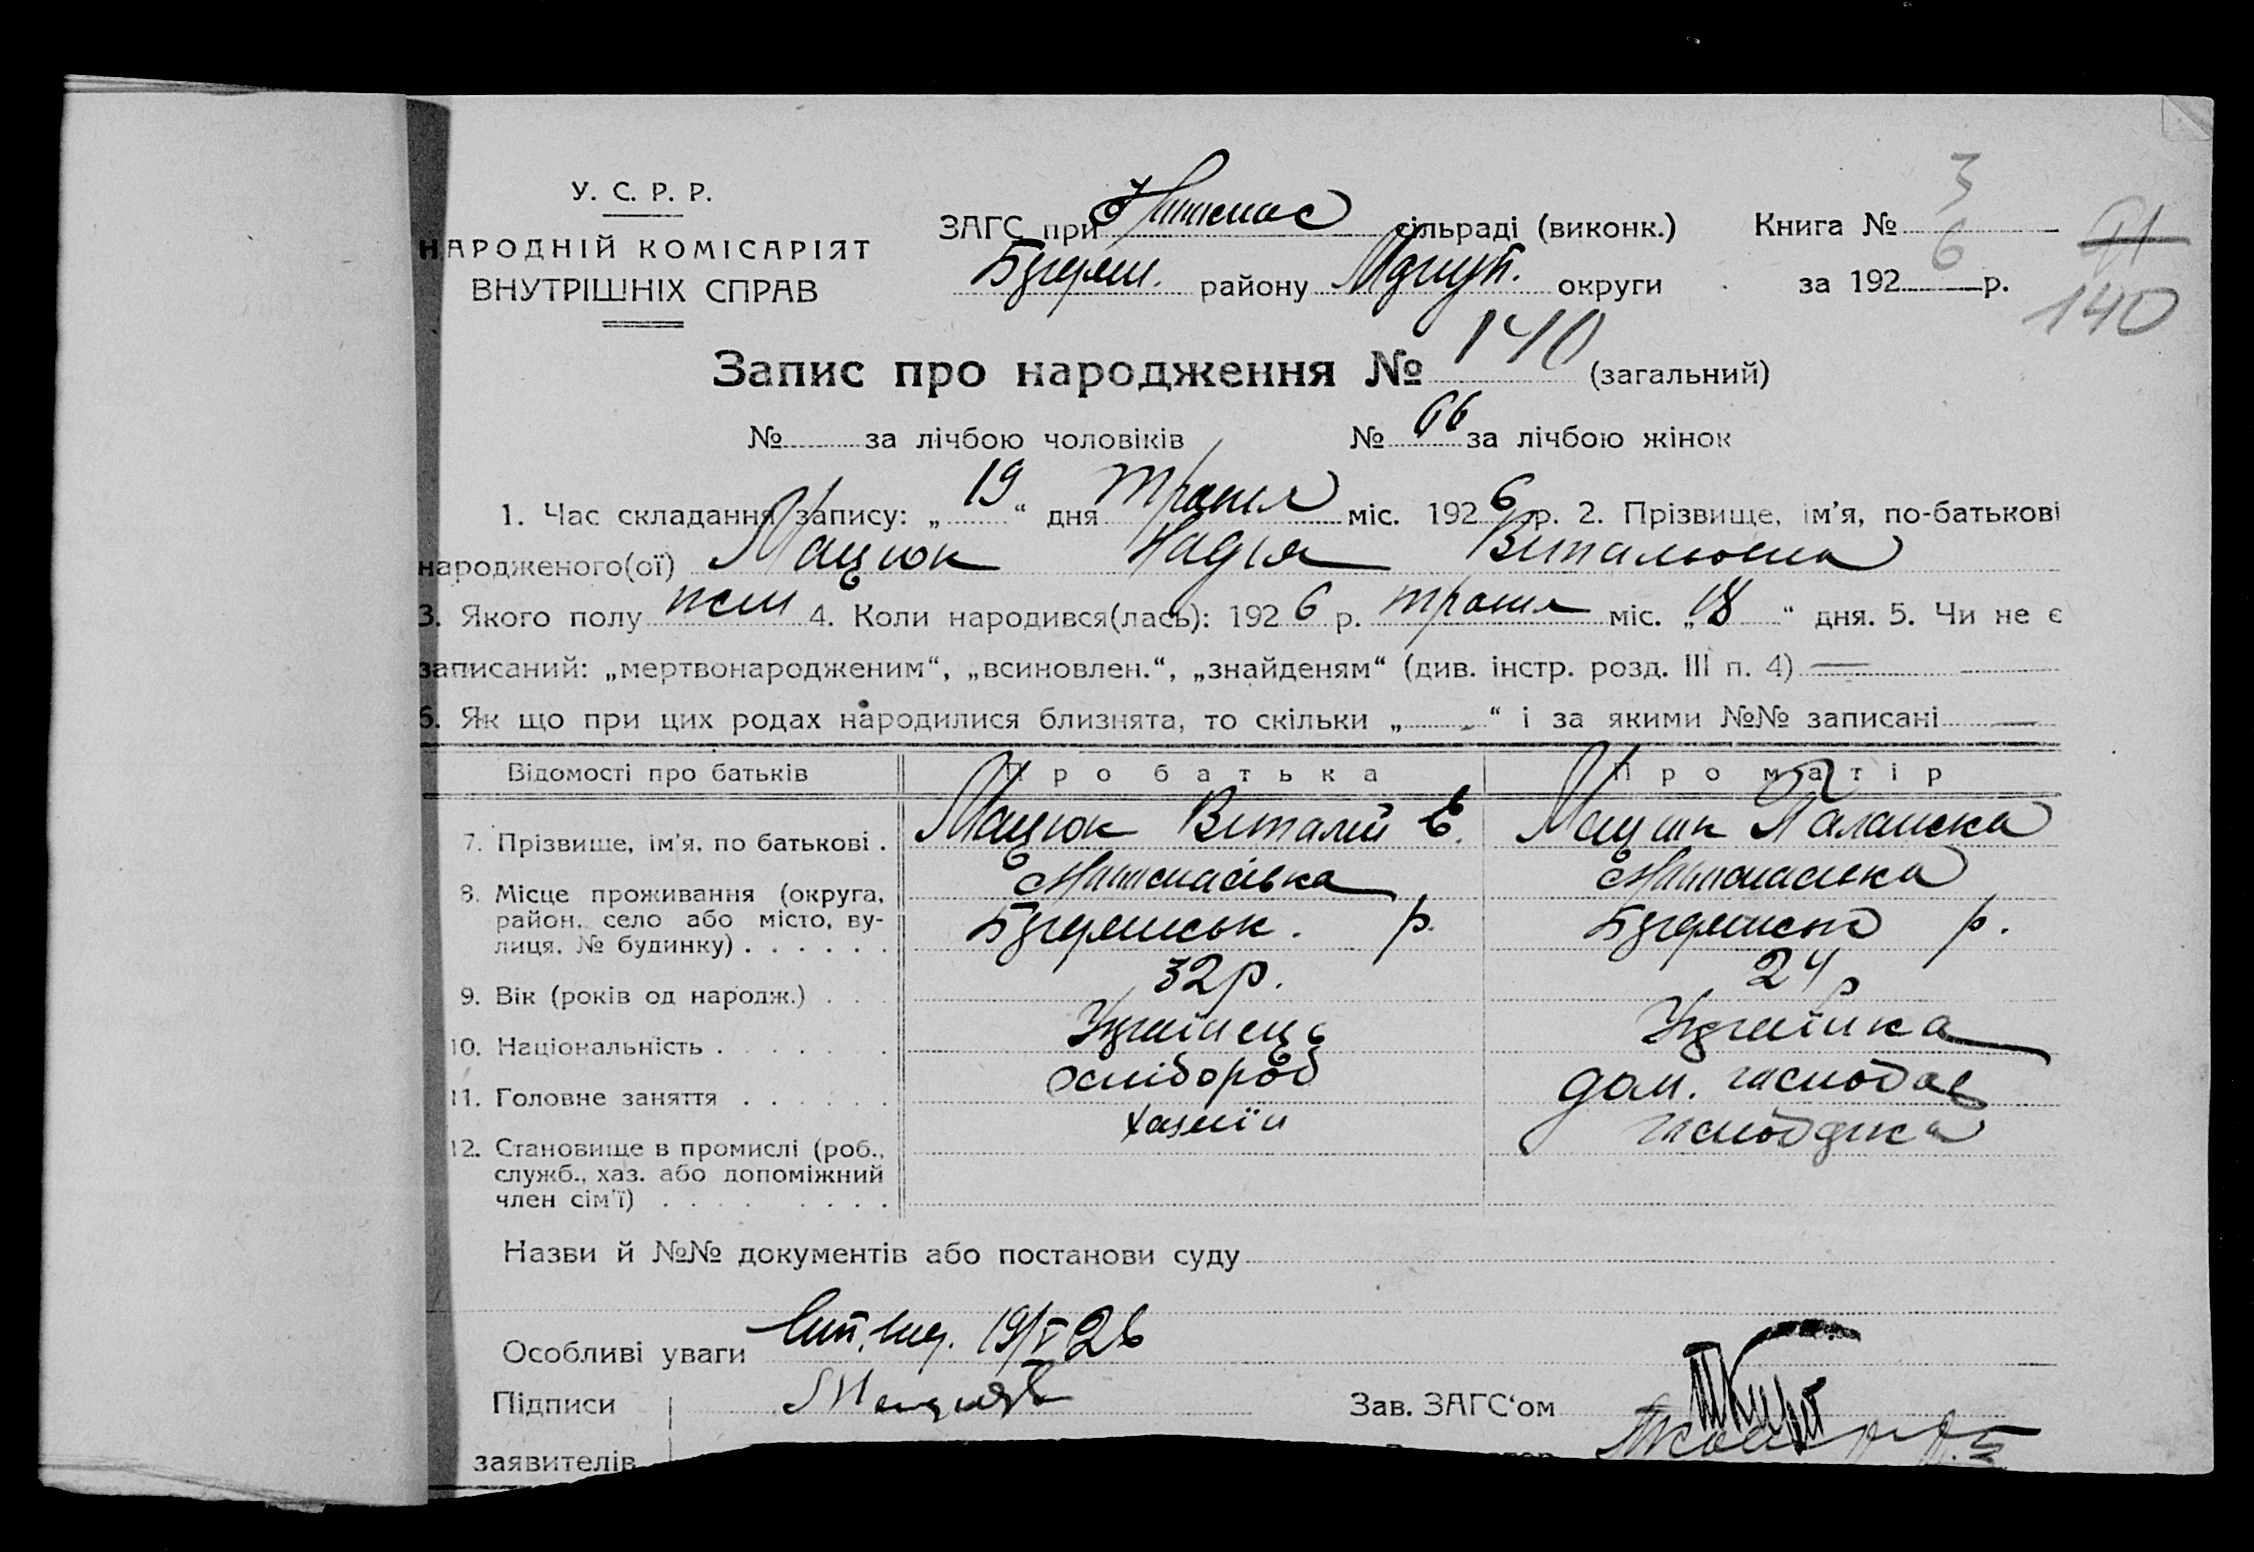 У. С. Р. Р.
НАРОДНІЙ КОМІСАРІЯТ
ВНУТРІШНІХ СПРАВ
ЗАГС при сільраді (виконк.)
району округи
Книга № 3
за 1926 р.
91
140
Запис про народження № 140 (загальний)
№ за лічбою чоловіків № 66 за лічбою жінок
1. Час складання запису: „19“ дня травня міс. 1926 р. 2. Прізвище, ім’я, по-батькові
народженого(ої) Мацюк Надія Витальовна
3. Якого полу жен 4. Коли народився(лась): 1926 р. травня міс. „18“ дня. 5. Чи не є
записаний: „мертвонародженим“, „всиновлен.“, „знайденям“ (див. інстр. розд. III п. 4) —
6. Як що при цих родах народилися близнята, то скільки „-“ і за якими №№ записані —
Відомості про батьків Про батька Про матір
7. Прізвище, ім’я, по батькові . Мацюк Виталий Є. Мацюк Палажка
8. Місце проживання (округа,
район, село або місто, ву-
лиця, № будинку) . . . . . . р. р.
9. Вік (років од народж.) . . . 32 р. 24 р
10. Національність . . . . . . Українець Українка
11. Головне заняття . . . . . . хлібороб дом. господар
12. Становище в промислі (роб.,
служб., хаз. або допоміжний
член сім’ї) . . . . . . . . хазяїн господарка
Назви й №№ документів або постанови суду
Особливі уваги 19/V 26
Підписи
заявителів
Зав. ЗАГС‘ом